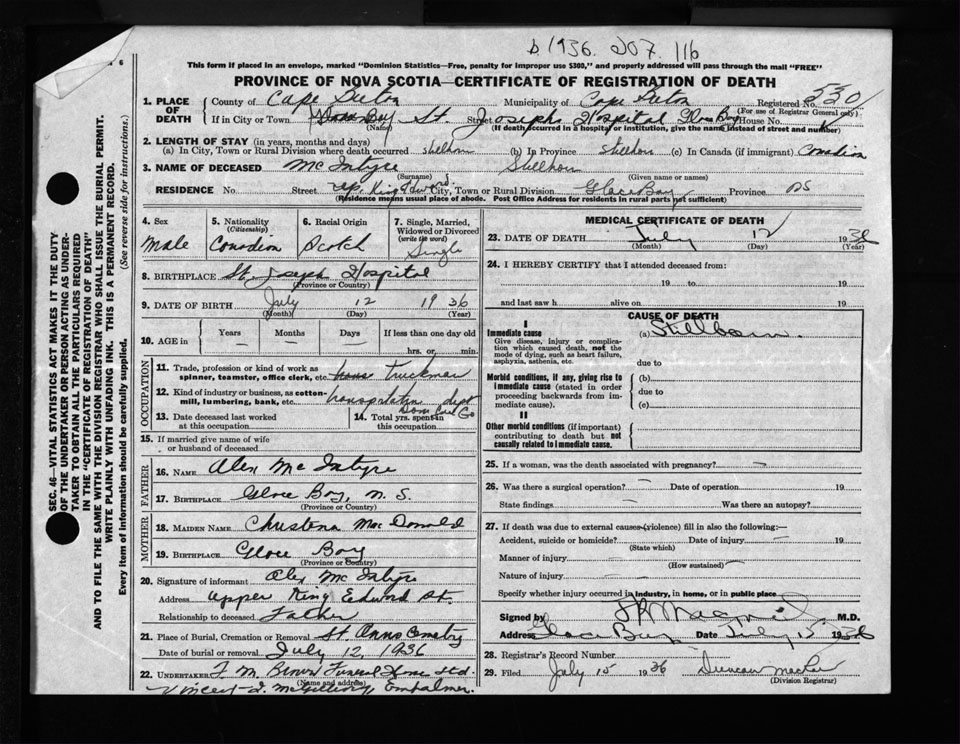 b 1936. 207. 116
6
This form if placed in an envelope, marked "Dominion Statistics—Free, penalty for improper use $300," and properly addressed will pass through the mail "FREE"
PROVINCE OF NOVA SCOTIA—CERTIFICATE OF REGISTRATION OF DEATH
SEC. 46—VITAL STATISTICS ACT MAKES IT THE DUTY
OF THE UNDERTAKER OR PERSON ACTING AS UNDER-
TAKER TO OBTAIN ALL THE PARTICULARS REQUIRED
IN THE "CERTIFICATE OF REGISTRATION OF DEATH"
AND TO FILE THE SAME WITH THE DIVISION REGISTRAR WHO SHALL ISSUE THE BURIAL PERMIT.
WRITE PLAINLY WITH UNFADING INK. THIS IS A PERMANENT RECORD.
Every item of Information should be carefully supplied. (See reverse side for instructions.)
1. PLACE OF DEATH County of Cape Breton Municipality of Cape Breton Registered No. 530
(For use of Registrar General only)
If in City or Town Glace Bay St. Josephs Hospital Glace Bay House No.
(Name) (If death occurred in a hospital or institution, give the name instead of street and number)
2. LENGTH OF STAY (in years, months and days)
(a) In City, Town or Rural Division where death occurred stillborn (b) In Province stillborn (c) In Canada (if immigrant) Canadian
3. NAME OF DECEASED McIntyre Stillborn
(Surname) (Given name or names)
RESIDENCE No. Street up. King Edward. City, Town or Rural Division Glace Bay Province NS
(Residence means usual place of abode. Post Office Address for residents in rural parts not sufficient)
4. Sex 5. Nationality (Citizenship) 6. Racial Origin 7. Single, Married, Widowed or Divorced (write the word)
Male Canadian Scotch Single
8. BIRTHPLACE St. Joseph Hospital
(Province or Country)
9. DATE OF BIRTH July 12 1936
(Month) (Day) (Year)
10. AGE in Years Months Days If less than one day old
— — — hrs. or min.
OCCUPATION
11. Trade, profession or kind of work as
spinner, teamster, office clerk, etc. truckman
12. Kind of industry or business, as cotton-
mill, lumbering, bank, etc. transportation dept
Dom Coal Co
13. Date deceased last worked
at this occupation
14. Total yrs. spent in
this occupation
15. If married give name of wife
or husband of deceased
FATHER
16. NAME Alex McIntyre
17. BIRTHPLACE Glace Bay, N.S.
(Province or Country)
MOTHER
18. MAIDEN NAME Christena MacDonald
19. BIRTHPLACE Glace Bay
(Province or Country)
20. Signature of informant Alex McIntyre
Address upper King Edward St.
Relationship to deceased Father
21. Place of Burial, Cremation or Removal St. Anns Cemetry
Date of burial or removal July 12, 1936
22. UNDERTAKER F. M. Brown Funeral Home Ltd.
(Name and address)
Vincent J. McGillivray Embalmer.
MEDICAL CERTIFICATE OF DEATH
23. DATE OF DEATH July 12 1936
(Month) (Day) (Year)
24. I HEREBY CERTIFY that I attended deceased from:
19 to 19
and last saw h alive on 19
CAUSE OF DEATH
I
Immediate cause (a) Stillborn.
Give disease, injury or complica-
tion which caused death, not the
mode of dying, such as heart failure,
asphyxia, asthenia, etc.
due to
Morbid conditions, if any, giving rise to
immediate cause (stated in order
proceeding backwards from im-
mediate cause).
(b)
due to
(c)
II
Other morbid conditions (if important)
contributing to death but not
causally related to immediate cause.
25. If a woman, was the death associated with pregnancy? —
26. Was there a surgical operation? — Date of operation 19
State findings — Was there an autopsy?
27. If death was due to external causes (violence) fill in also the following:—
Accident, suicide or homicide? Date of injury — 19
(State which)
Manner of injury —
(How sustained)
Nature of injury —
Specify whether injury occurred in industry, in home, or in public place
Signed by M.D.
Address Glace Bay Date July 15 1936
28. Registrar's Record Number
29. Filed July 15 1936 Duncan
(Division Registrar)